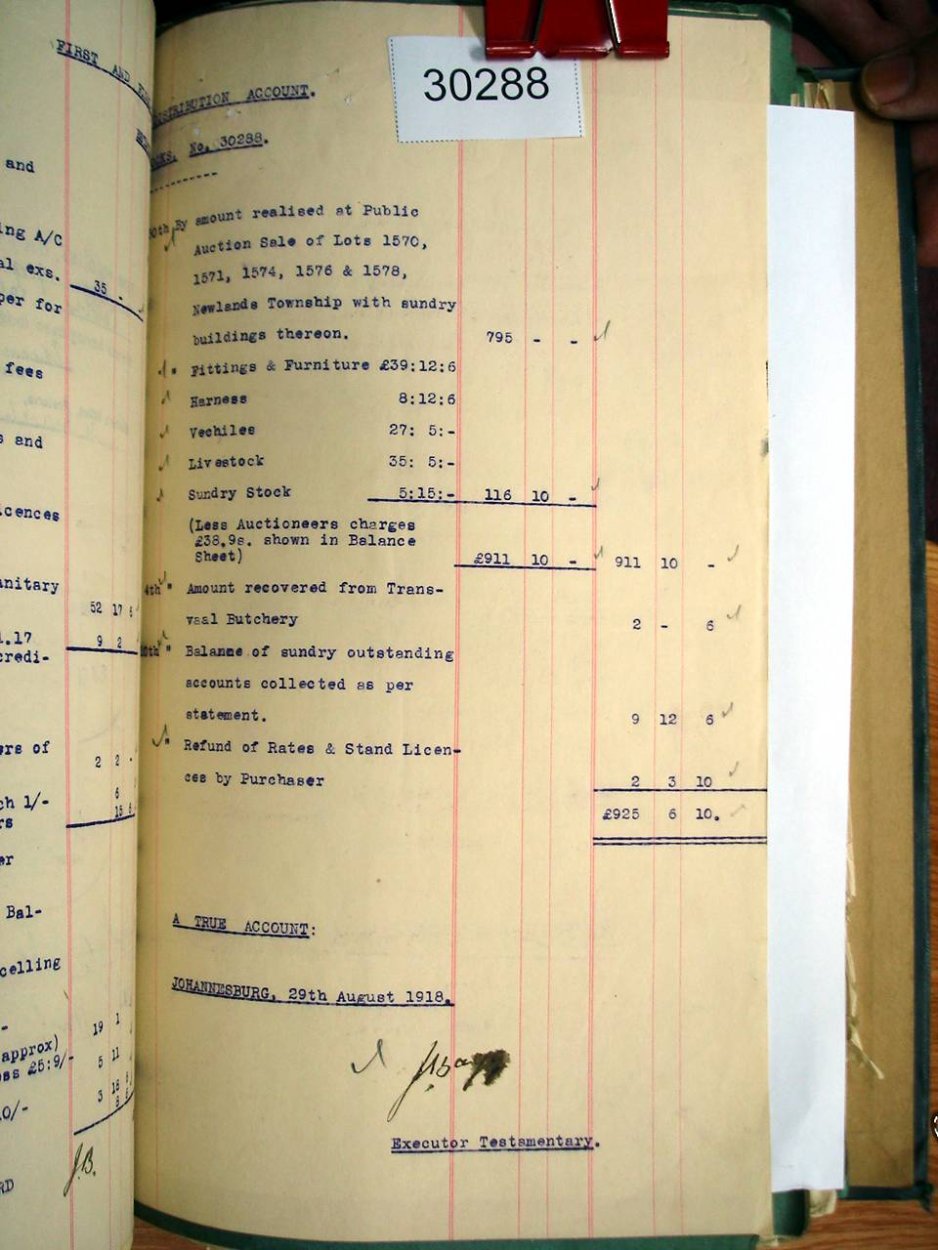 30288
FIRST AND
DISTRIBUTION ACCOUNT.
No. 30288.
and
ing A/C
al exs.
35 -
per for
fees
s and
cences
anitary
52 17 6
1.17 9 2
credi-
ers of
2 2 -
6
ch 1/- 15 6
rs
er
Bal-
celling
-
19 1
approx)
ess £5:9/- 5 11
3 16
0/-
J.B.
RD
By amount realised at Public
Auction Sale of Lots 1570,
1571, 1574, 1576 & 1578,
Newlands Township with sundry
buildings thereon. 795 - -
" Fittings & Furniture £39:12:6
Harness 8:12:6
Vechiles 27: 5:-
Livestock 35: 5:-
Sundry Stock 5:15:- 116 10 -
(Less Auctioneers charges
£38.9s. shown in Balance
Sheet) £911 10 - 911 10 -
4th " Amount recovered from Trans-
vaal Butchery 2 - 6
" Balance of sundry outstanding
accounts collected as per
statement. 9 12 6
" Refund of Rates & Stand Licen-
ces by Purchaser 2 3 10
£925 6 10.
A TRUE ACCOUNT:
JOHANNESBURG, 29th August 1918.
Executor Testamentary.